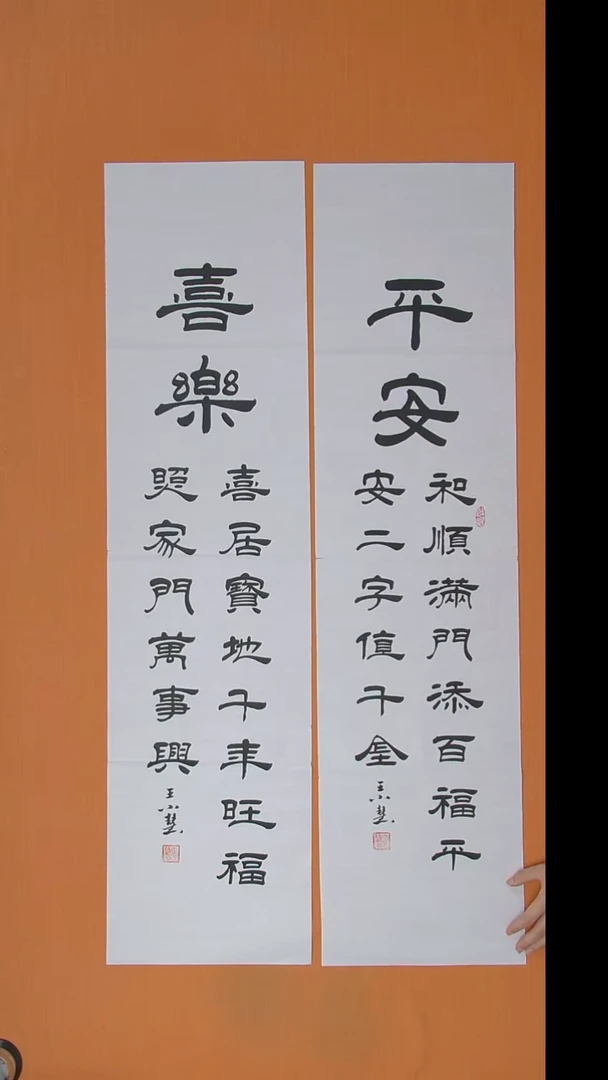 平安
和順滿門添百福平
安二字值千金
喜樂
喜居寶地千年旺福
照家門萬事興